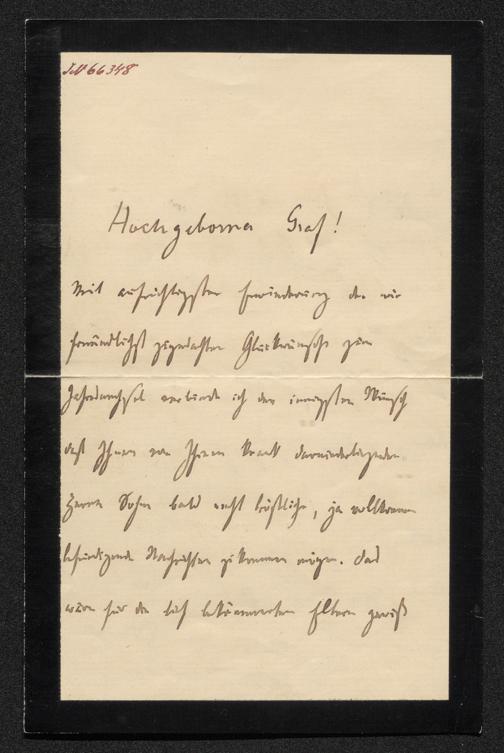 IN 66348
Hochgeborner Graf!
Mit aufrichtigster Erwiederung der mir
freundlichst zugedachten Glückwünsche zum
Jahreswechsel verbinde ich den innigsten Wunsch
daß Ihnen von Ihrem krank darniederliegenden
Herrn Sohn bald recht tröstliche, ja vollkommen
befriedigende Nachrichten zukommen mögen. Das
wäre für die tief bekümmerten Eltern gewiß